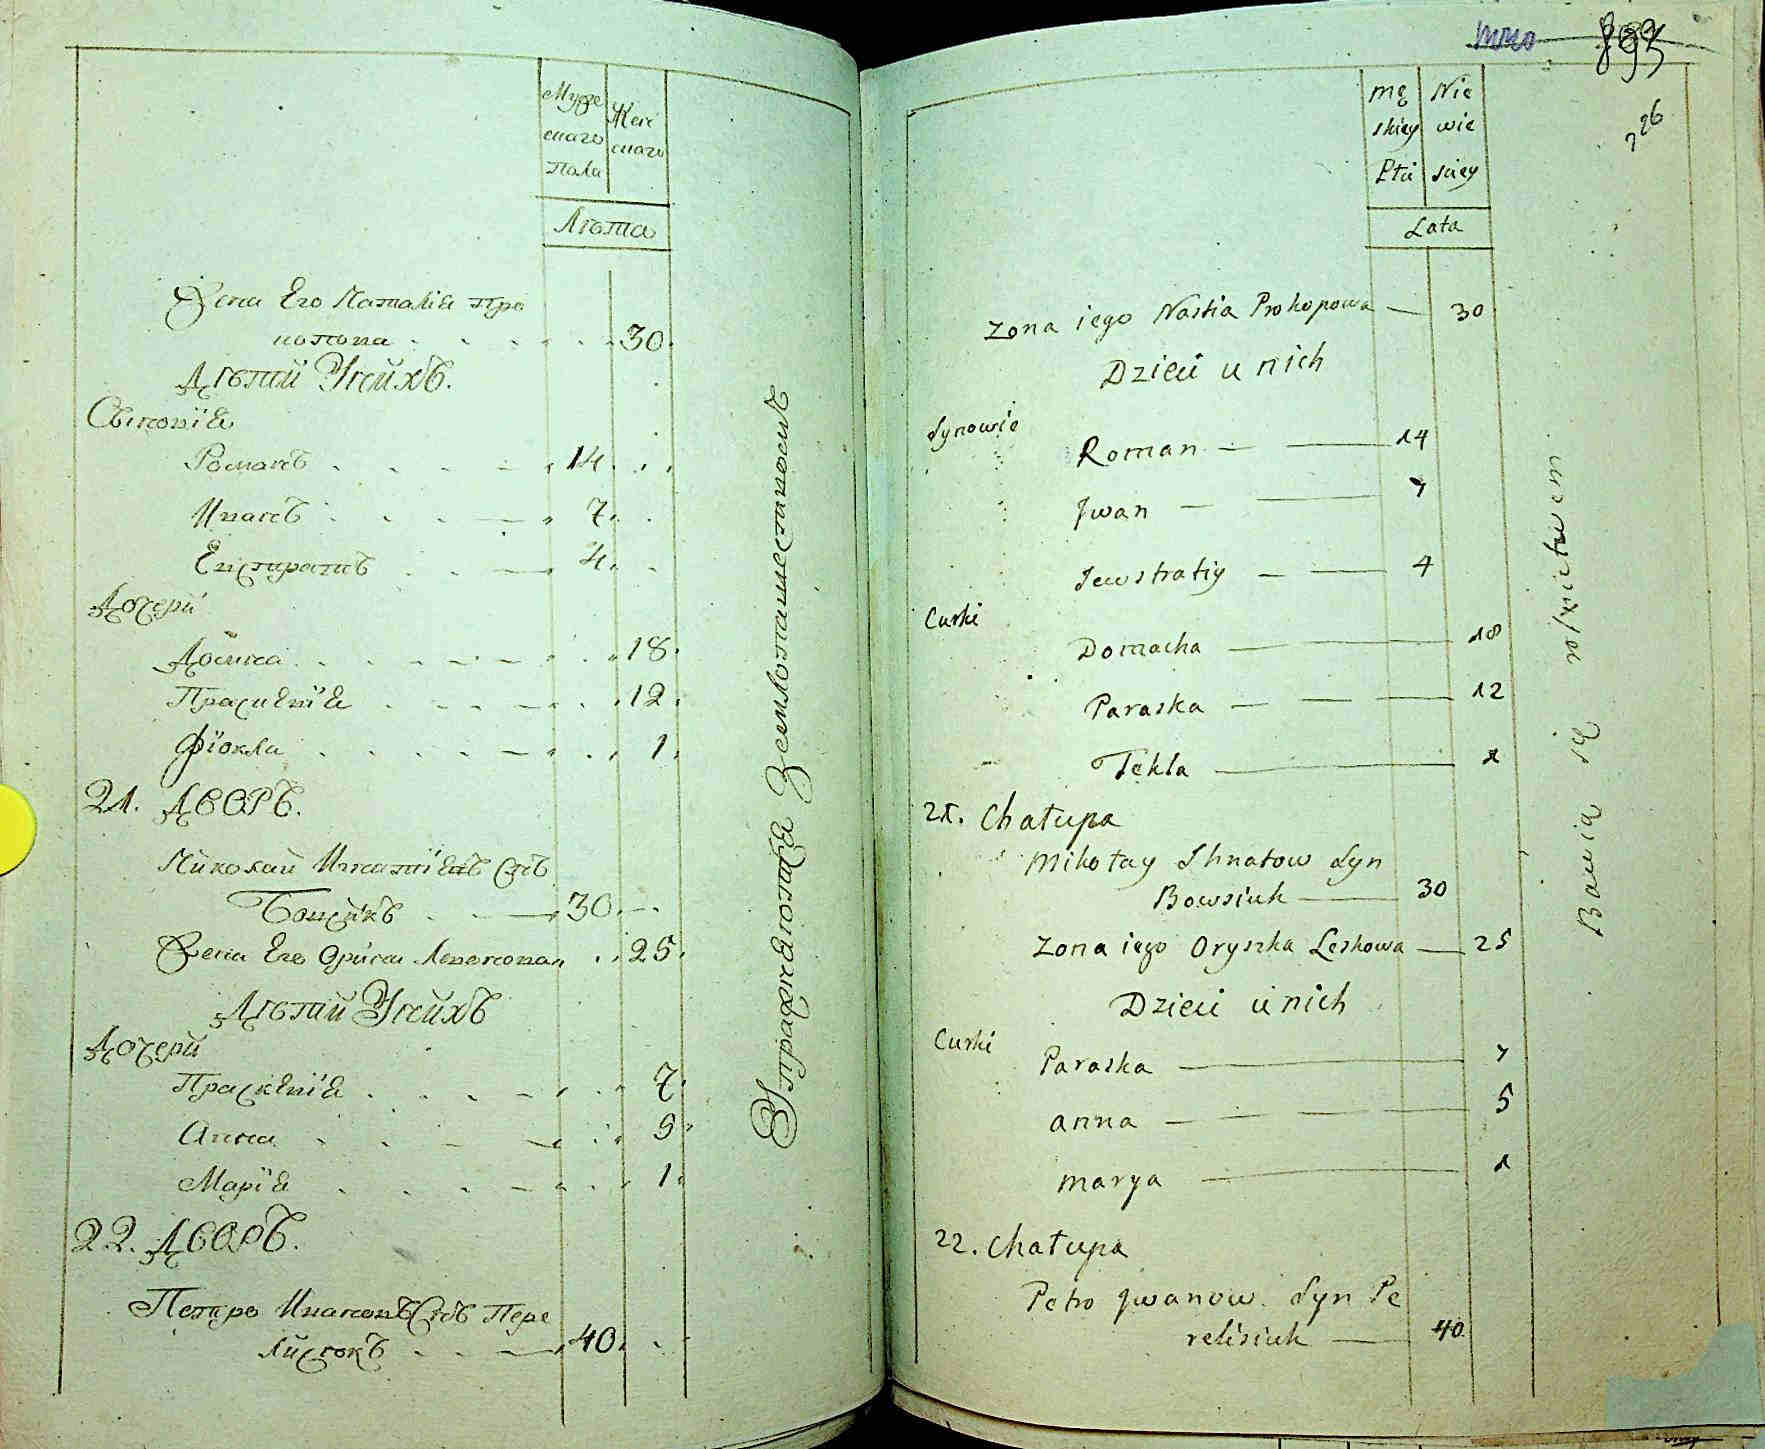 Мужескаго Пола
Женскаго
Лѣта
Жена Его Наталія Про
копова 30
Дѣтй Унйхъ.
Сыновія
Романъ 14
Иванъ 7
Евстратій 4
Дочерй
Домна 18
Прасковія 12
Фіокла 1
21. ДВОРЪ.
Нйколай Игнатіевъ Снъ
30
Жена Его 25
Дѣтй Унйхъ
Дочерй
Прасковія 7
Анна 5
Марія 1
22. ДВОРЪ.
Петро Ивановъ Снъ Пере
лйсюкъ 40
Упражняются Землопашествомъ
893
726
Mę
skiey
Płci
Nie
wie
sciey
Lata
Zona iego Nastia Prokopowa — 30
Dzieci u nich
Synowie
Roman — 14
Jwan — 7
Jewstratiy — 4
Curki
Domacha — 18
Paraska — 12
Tekla — 1
21. Chałupa
Mikołay Ihnatow Syn
Bowsiuk — 30
Zona iego Oryszka Leskowa — 25
Dzieci u nich
Curki
Paraska — 7
anna — 5
marya — 1
22. Chałupa
Petro Jwanow Syn Pe
relisiuk — 40
Bawią się rolnictwem